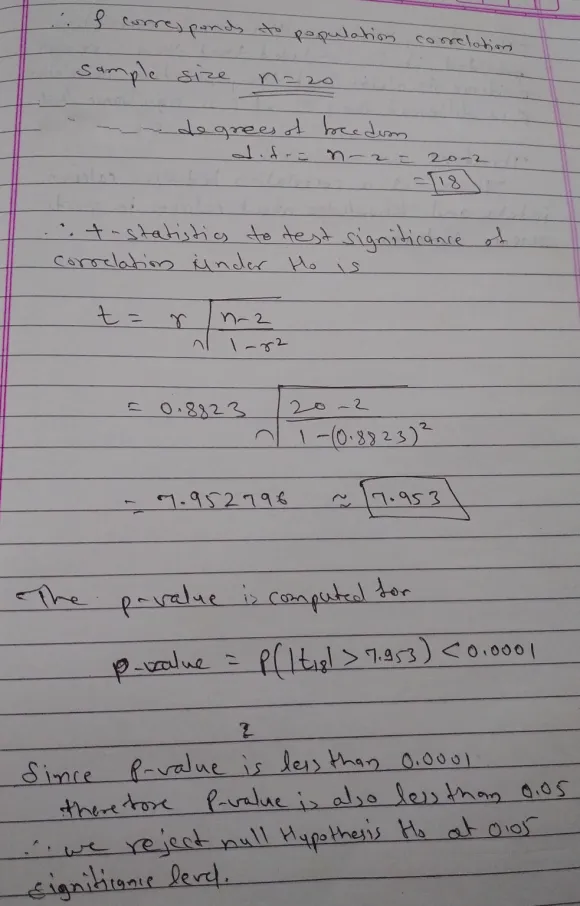 ∴ ρ corresponds to population correlation
sample size n=20
degrees of freedom
d.f. = n-2 = 20-2
= 18
∴ t-statistics to test significance of
correlation under H0 is
t = r √((n-2)/(1-r²))
= 0.8823 √((20-2)/(1-(0.8823)²))
= 7.952796 ≈ 7.953
The p-value is computed for
p-value = P(|t18| > 7.953) < 0.0001
Since P-value is less than 0.0001
therefore P-value is also less than 0.05
∴ we reject null Hypothesis H0 at 0.05
significance level.